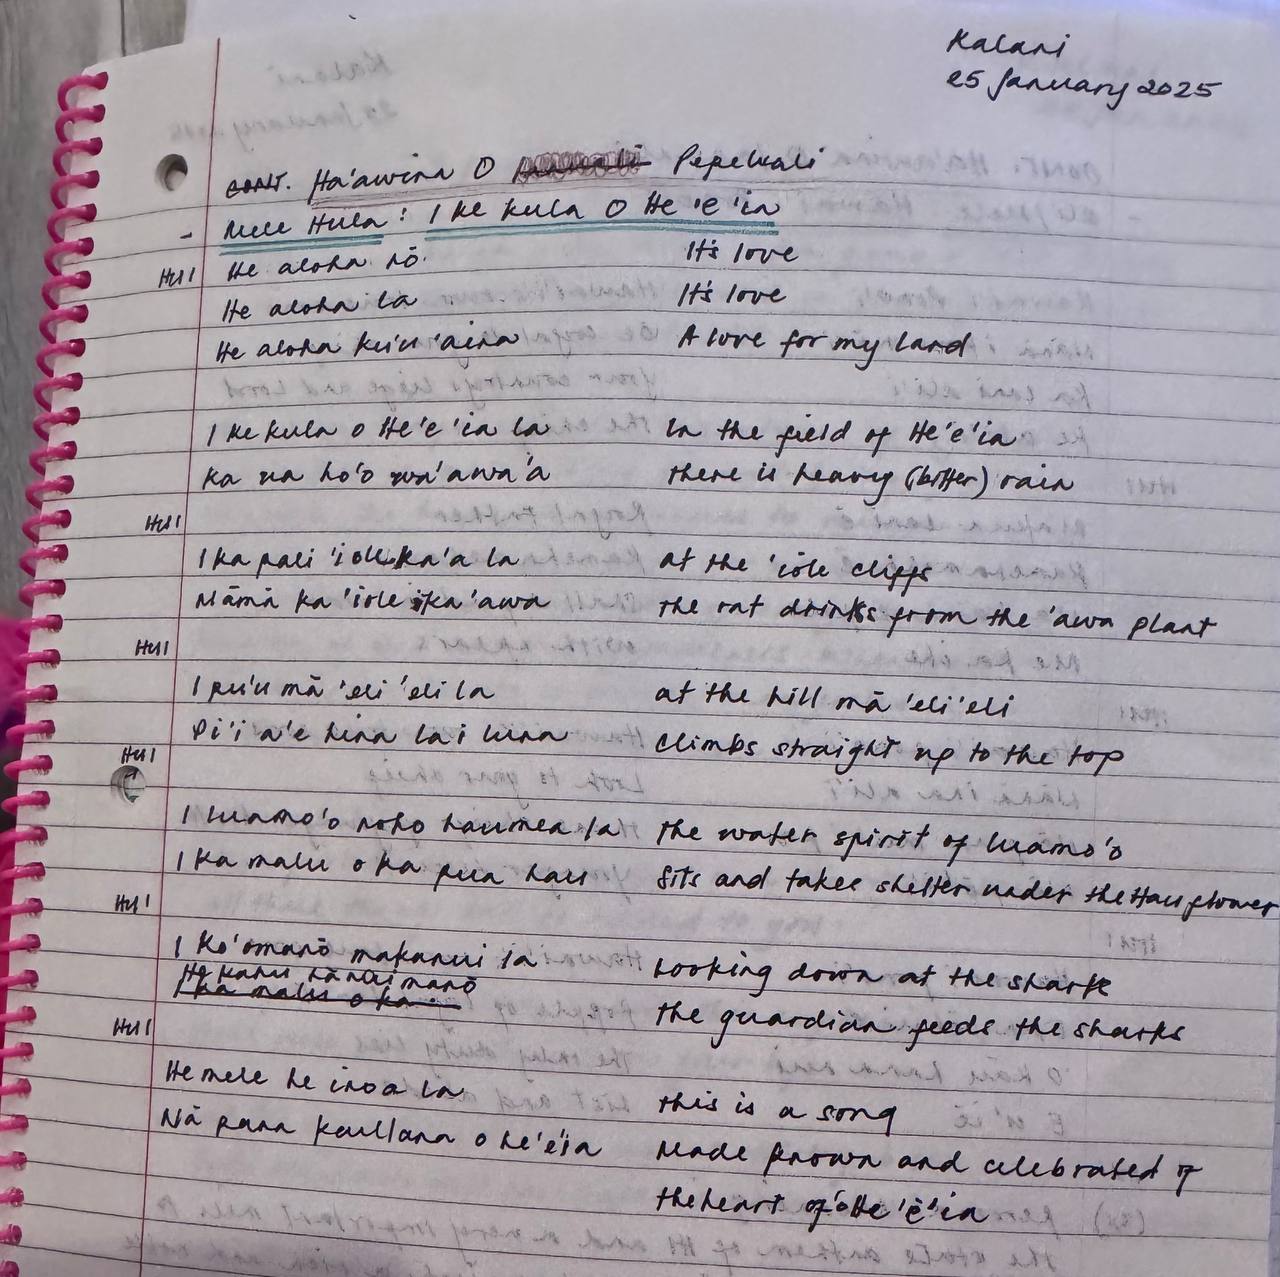 Kalani
25 January 2025
cont. Ha'awina O Pepeluali
- Mele Hula: I ke kula O He'e'ia
HUI He aloha nō. It's love
He aloha la It's love
He aloha ku'u 'aina A love for my land
I ke kula o He'e'ia la In the field of He'e'ia
ka ua ho'o wa'awa'a there is heavy (bitter) rain
HUI
I ka pali 'iole ka'a la at the 'iole cliffs
Māmā ka 'iole i ka 'awa the rat drinks from the 'awa plant
HUI
I pu'u mā 'eli 'eli la at the hill mā 'eli 'eli
Pi'i a'e hina la i luna climbs straight up to the top
HUI
I luamo'o noho haumea la the water spirit of luamo'o
I ka malu o ka pua hau sits and takes shelter under the Hau flower
HUI
I Ko'omanō makanui la Looking down at the shark
He kahu hānai manō
I ka malu o ka the guardian feeds the sharks
HUI
He mele he inoa la this is a song
Nā pana kaullana o he'e'ia Made known and celebrated of
the heart of He'e'ia